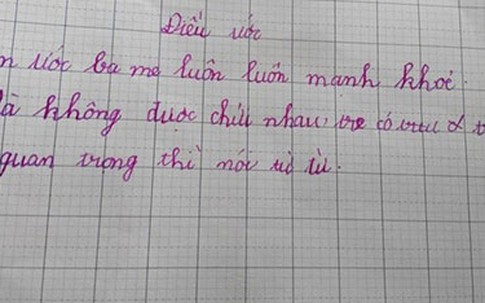 Điều ước
n ước ba mẹ luôn luôn mạnh khỏe.
à không được chửi nhau, có
quan trọng thì nói từ từ.